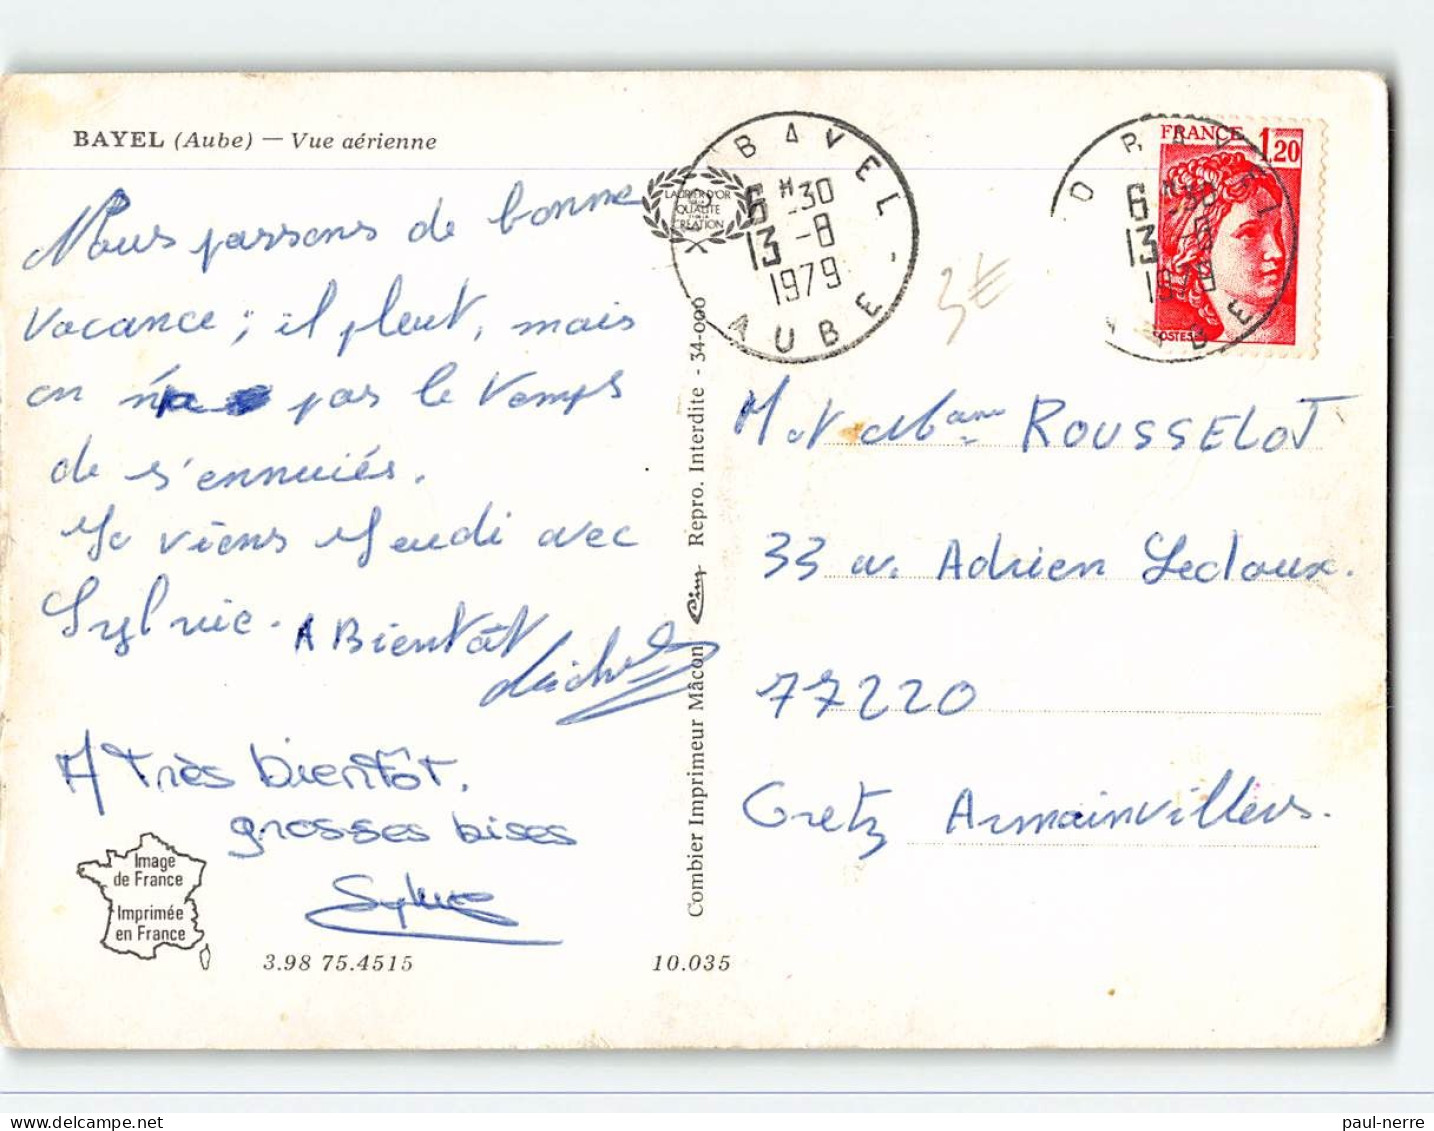 BAYEL (Aube) — Vue aérienne
Nous passons de bonne
vacance, il pleut, mais
on n'a pas le temps
de s'ennuiés.
Je viens Jeudi avec
Sylvie. A Bientôt
Michel
A très bientôt.
grosses bises
Sylvie
Image
de France
Imprimée
en France
3.98 75.4515
10.035
Combier Imprimeur Mâcon Cim Repro. Interdite - 34-000
LAURIER D'OR
DE LA
QUALITÉ
CRÉATION
BAYEL
6 H 30
13 -8
1979
AUBE
3€
FRANCE 1,20
POSTES
BAYEL
6 H 30
13 -8
1979
AUBE
M et Mame ROUSSELOT
33 av. Adrien Ledoux.
77220
Gretz Armainvilliers.
paul-nerre